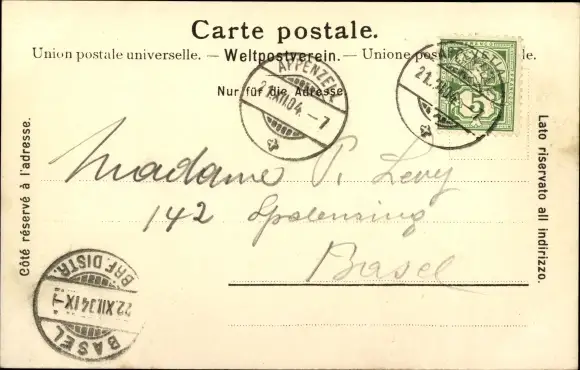 Carte postale.
Union postale universelle. — Weltpostverein. — Unione pos le.
Nur für die Adresse
APPENZELL
21.XII.04. – 7
21.XII.04. – 7
5
Côté réservé à l'adresse.
Lato riservato all indirizzo.
Madame P. Levy
142 Spalenring
Basel
BRF. DISTR.
22.XII.04 IX – 1
BASEL